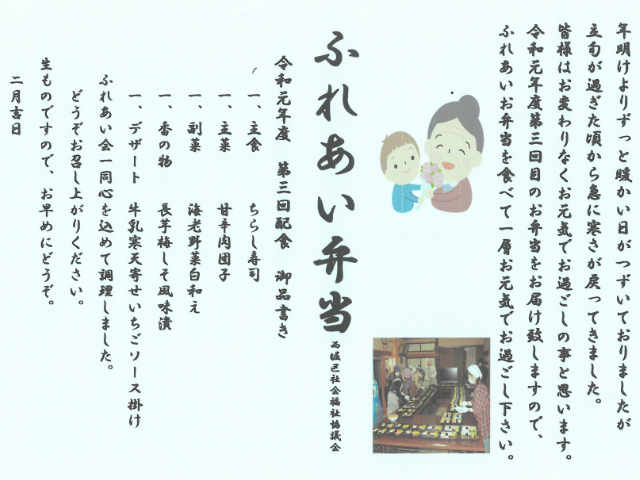 年明けよりずっと暖かい日がつずいておりましたが
立旬が過ぎた頃から急に寒さが戻ってきました。
皆様はお変わりなくお元気でお過ごしの事と思います。
令和元年度第三回目のお弁当をお届け致しますので、
ふれあいお弁当を食べて一層お元気でお過ごし下さい。
ふれあい弁当
西堀区社会福祉協議会
令和元年度 第三回配食 御品書き
一、主食 ちらし寿司
一、主菜 甘辛肉団子
一、副菜 海老野菜白和え
一、香の物 長芋梅しそ風味漬
一、デザート 牛乳寒天寄せいちごソース掛け
ふれあい会一同心を込めて調理しました。
どうぞお召し上がりください。
生ものですので、お早めにどうぞ。
二月吉日